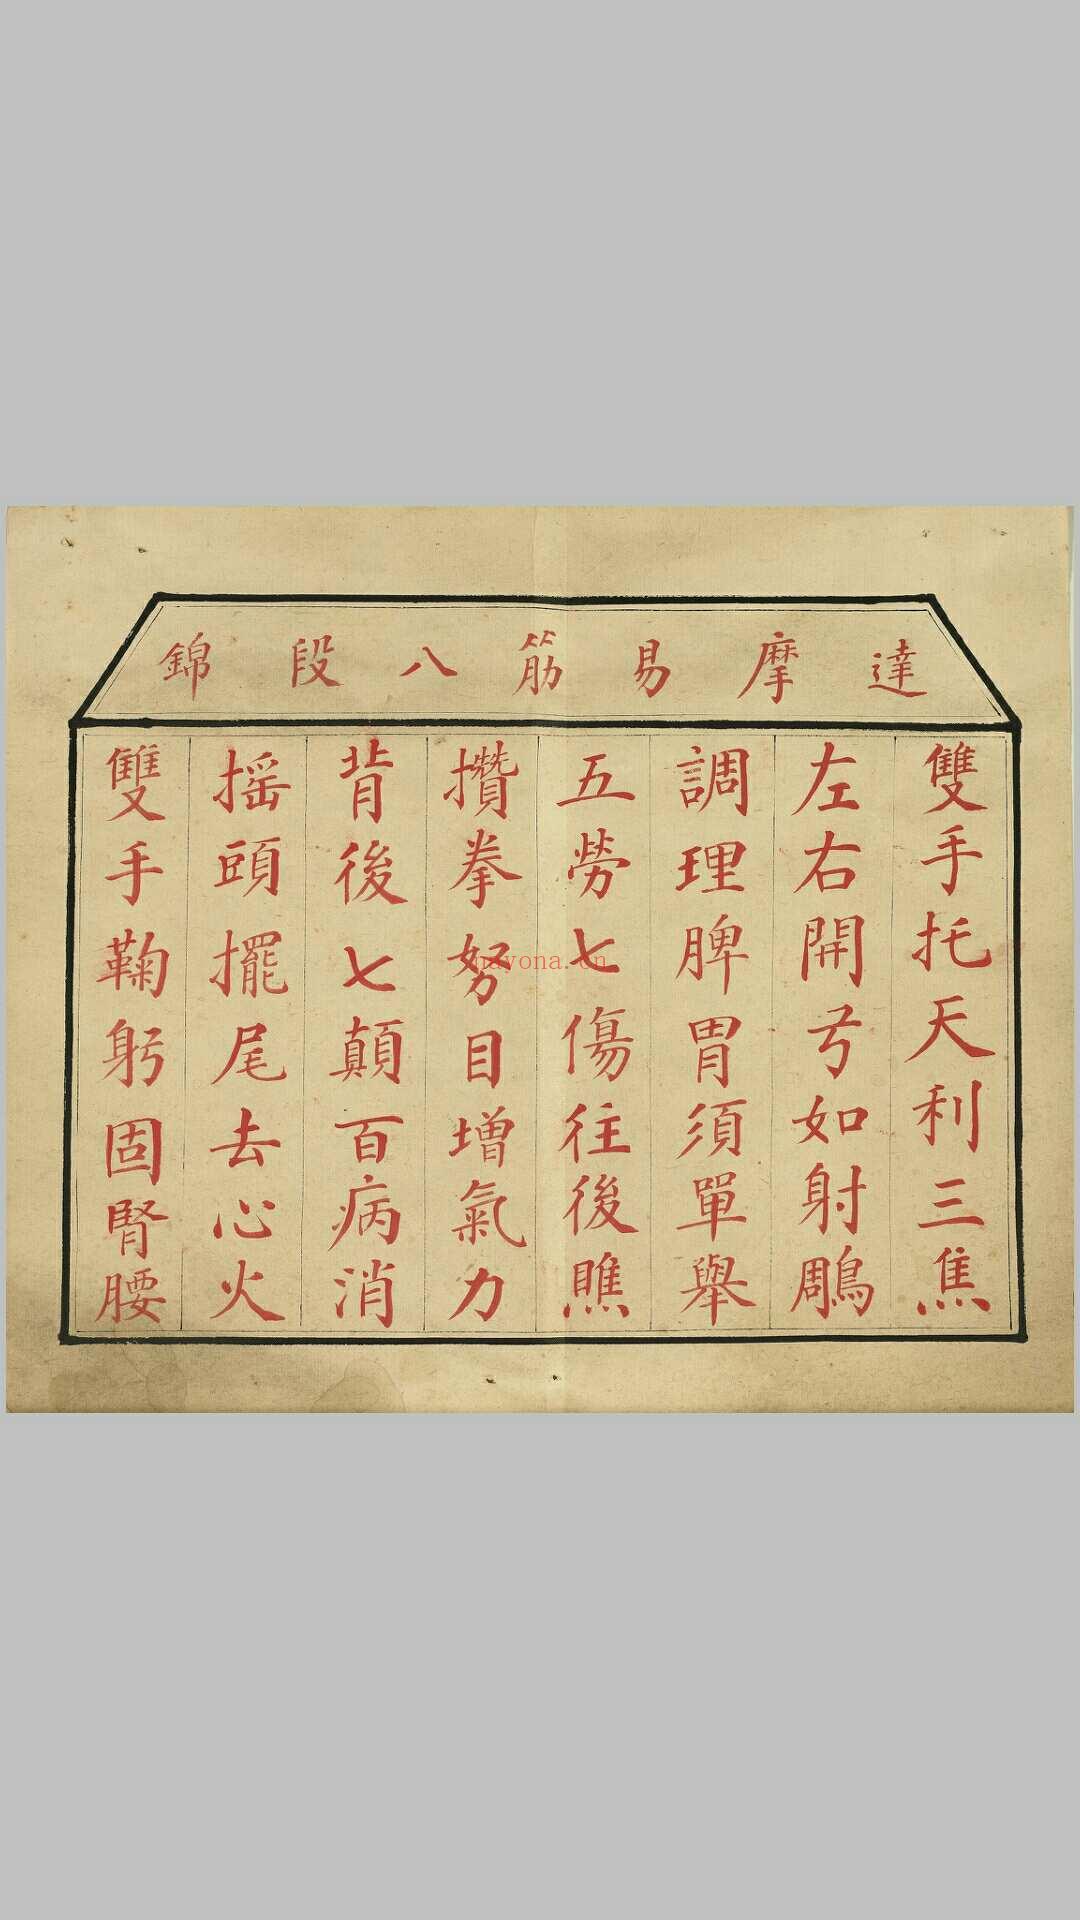 達摩易筋八段錦
雙手托天利三焦
左右開弓如射鵰
調理脾胃須單舉
五勞七傷往後瞧
攢拳努目增氣力
背後七顛百病消
摇頭擺尾去心火
雙手鞠躬固腎腰
nayona.cn